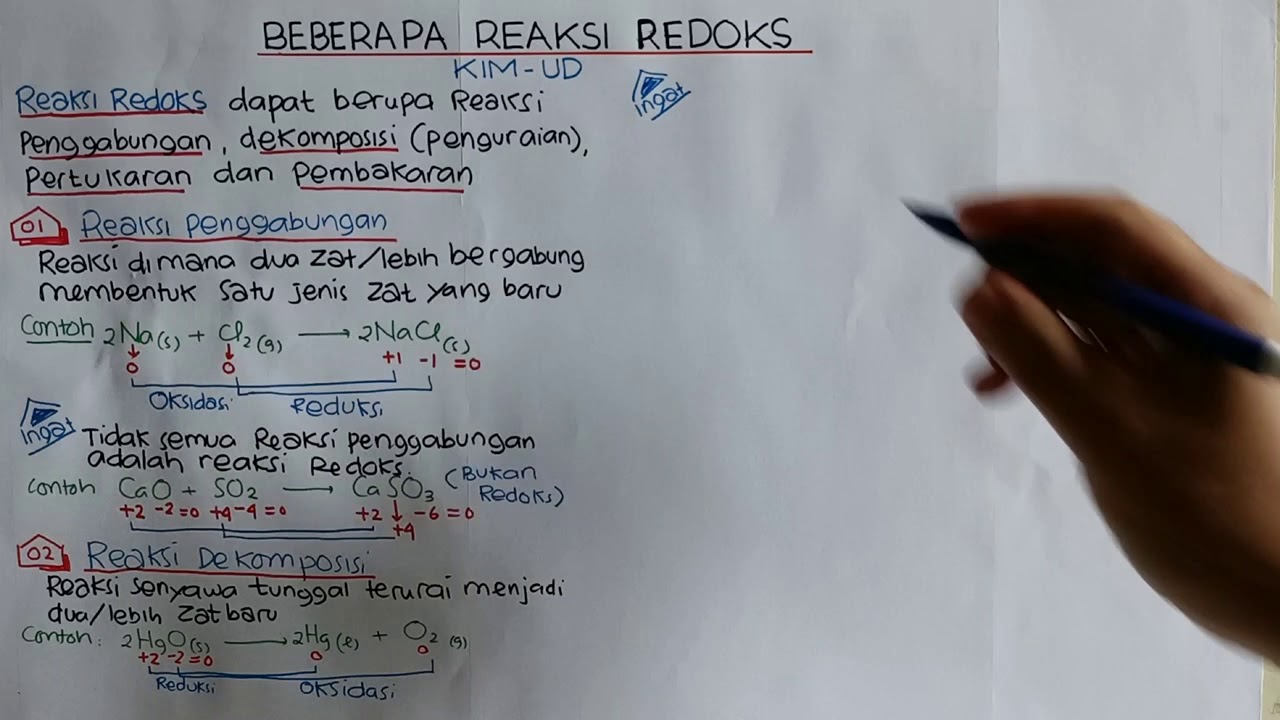 BEBERAPA REAKSI REDOKS
KIM-UD
Reaksi Redoks dapat berupa Reaksi
Penggabungan, dekomposisi (penguraian),
Pertukaran dan Pembakaran
01 Reaksi Penggabungan
Reaksi dimana dua zat/lebih bergabung
membentuk satu jenis zat yang baru
Contoh 2Na(s) + Cl₂(g) → 2NaCl(s)
0 0 +1 -1 =0
Oksidasi Reduksi
Ingat Tidak semua Reaksi penggabungan
adalah reaksi Redoks.
Contoh CaO + SO₂ → CaSO₃ (Bukan Redoks)
+2 -2=0 +4-4=0 +2 ↓ -6=0
+4
02 Reaksi Dekomposisi
Reaksi senyawa tunggal terurai menjadi
dua/lebih zat baru
Contoh: 2HgO(s) → 2Hg(l) + O₂(g)
+2 -2=0 0 0
Reduksi Oksidasi
Ingat